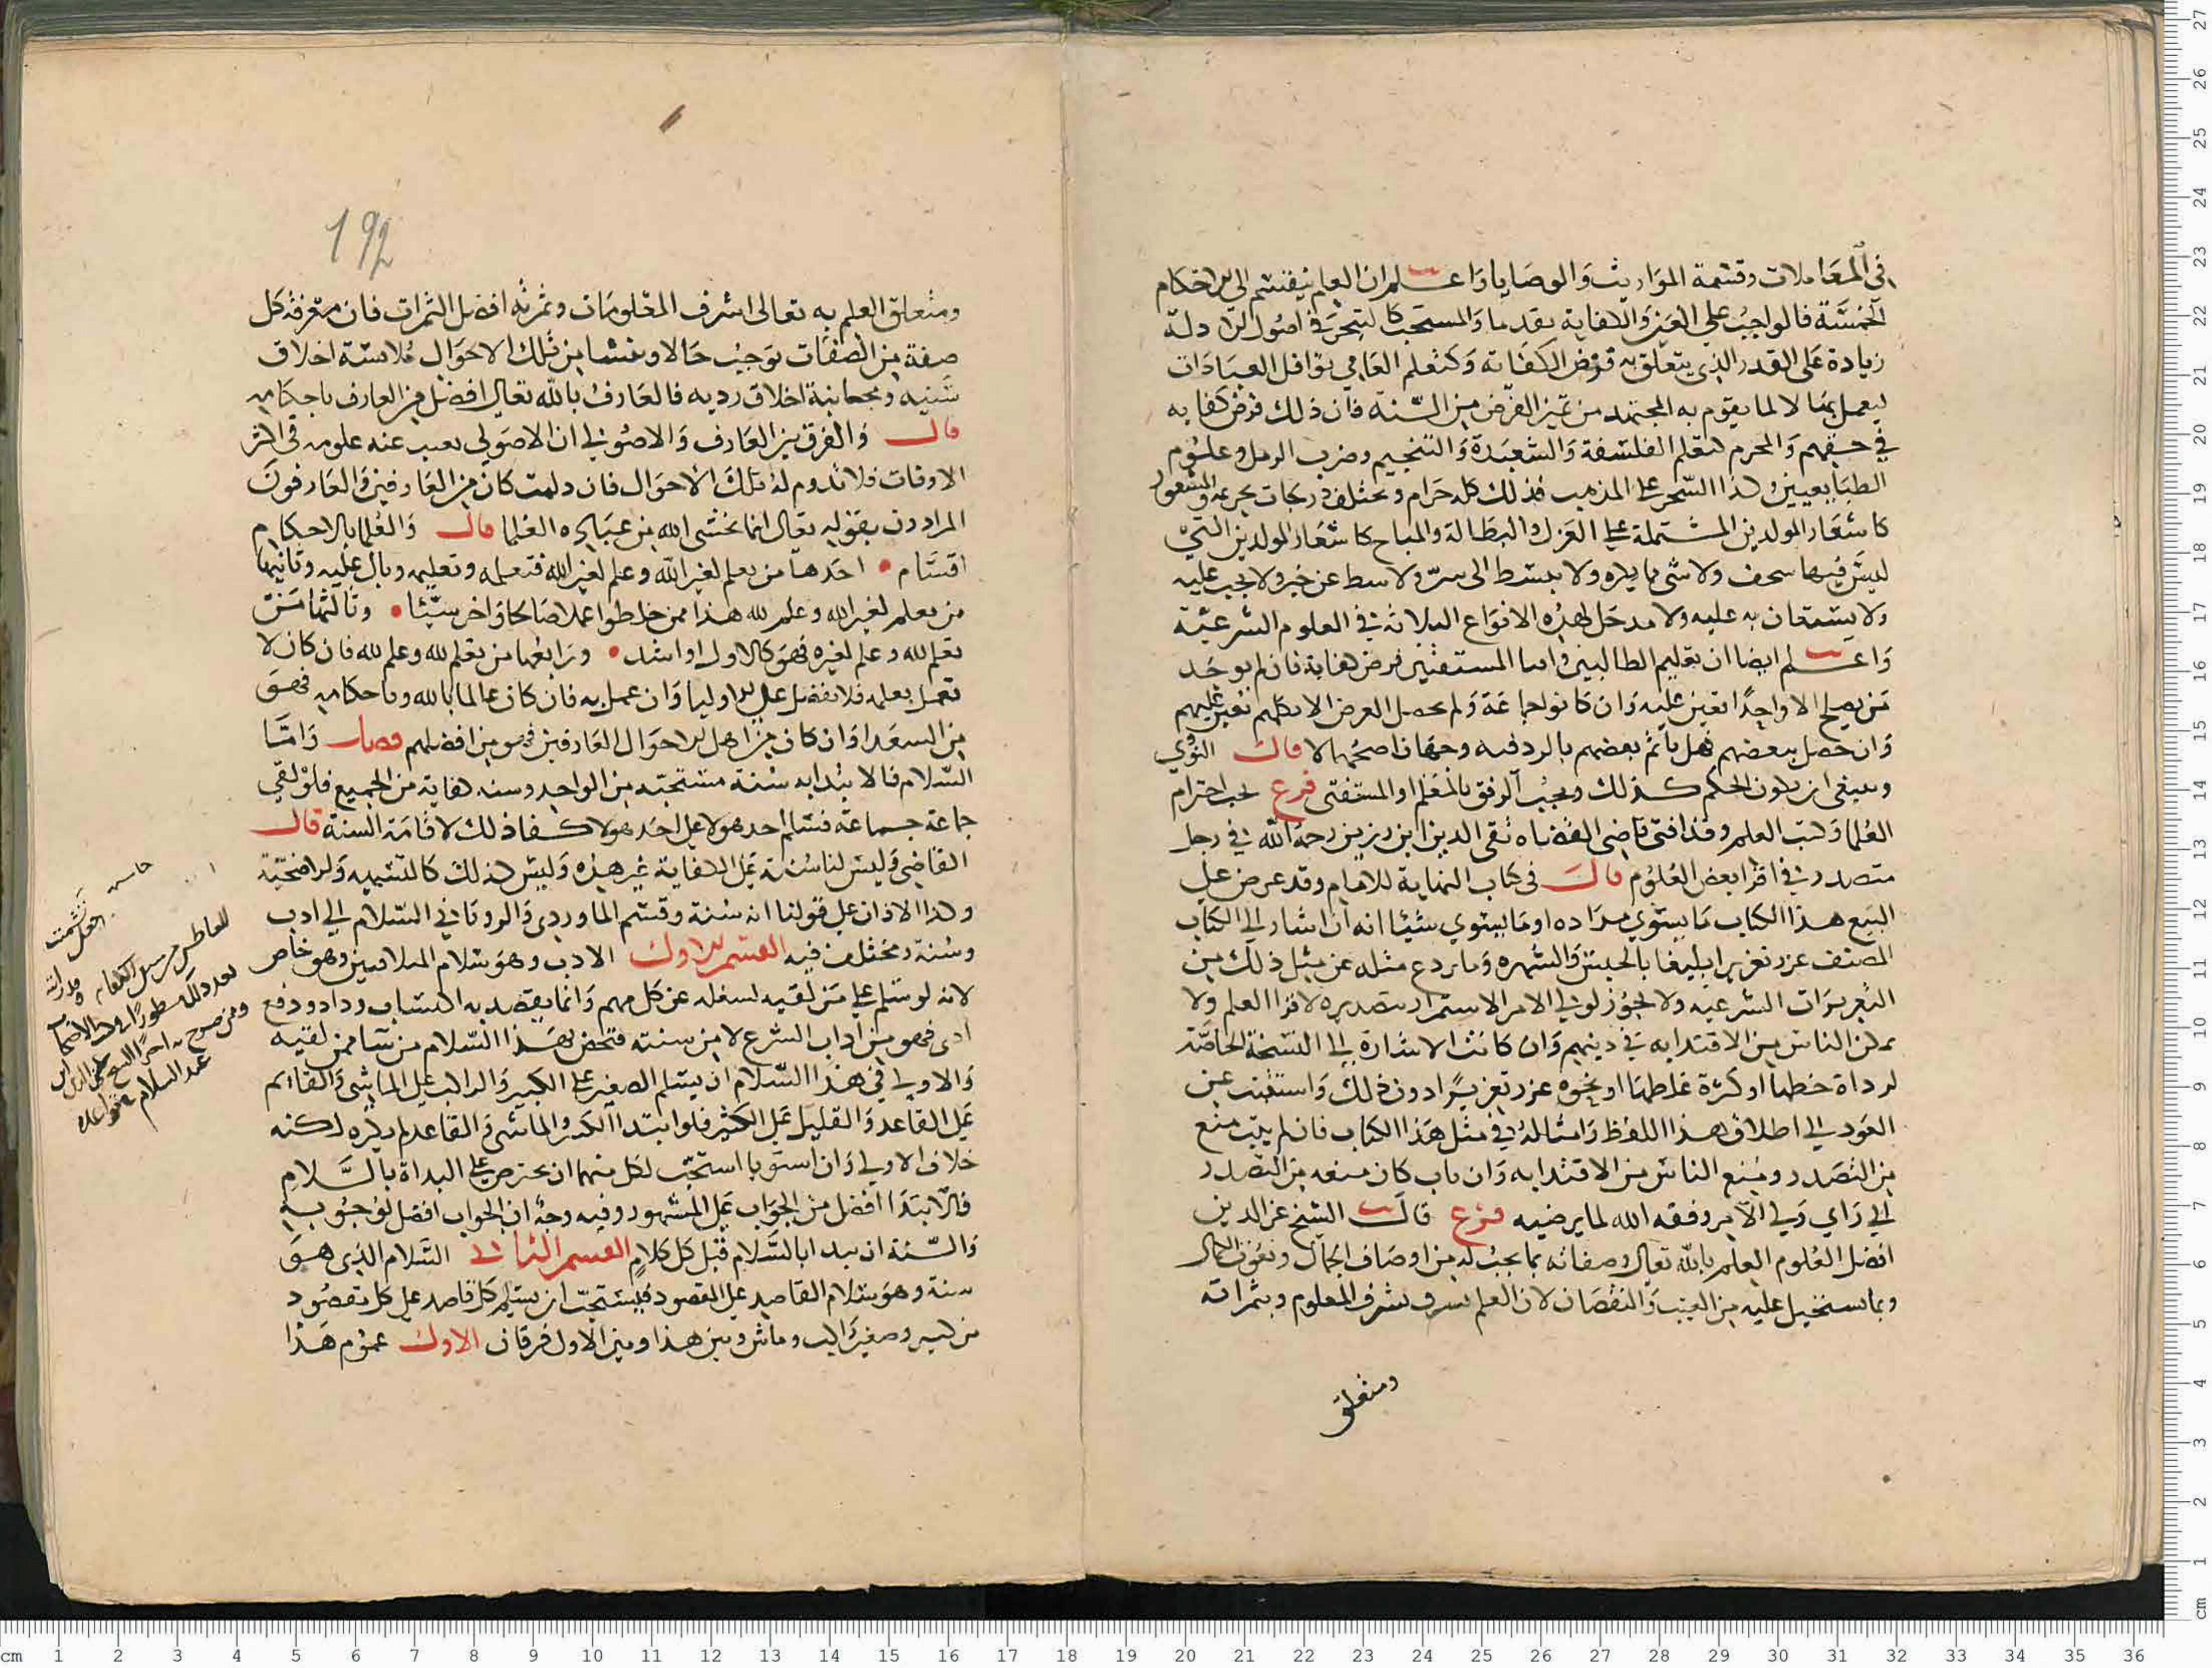 في المعاملات وقسمة المواريث والوصايا واعلم ان العلم ينقسم الى الاحكام
الخمسة فالواجب على العين والكفاية تقدما والمستحب كالتبحر في اصول الادلة
زيادة على القدر الذي يتعلق به فرض الكفاية وكتعلم العامي نوافل العبادات
ليعمل بها لا لما يقوم به المجتهد من تميز الفرض من السنة فان ذلك فرض كفايه
في حقهم والمحرم كتعلم الفلسفة والشعبذة والتنجيم وضرب الرمل وعلوم
الطبايعيين وكذا السحر على المذهب فذلك كله حرام وتختلف دركات تحريمه والمكروه
كاشعار المولدين المشتملة على الغزل والبطالة والمباح كاشعار المولدين التي
ليس فيها سخف ولا شي مما يكره ولا ينشط الى شر ولا يثبط عن خير ولا يحث عليه
ولا يستعان به عليه ولا مدخل لهذه الانواع الثلاثة في العلوم الشرعية
واعلم ايضا ان تعليم الطالبين وافتا المستفتين فرض كفاية فان لم يوجد
من يصلح الا واحدا تعين عليه وان كانوا جماعة ولم يحصل الغرض الا بكلهم تعين عليهم
وان حصل ببعضهم فهل ياثم بعضهم بالرد فيه وجهان اصحهما لا قال النووي
وينبغي ان يكون الحكم كذلك ويجب الرفق بالمتعلم او المستفتي فرع يجب احترام
العلما وكتب العلم وقد افتى قاضي القضاه تقي الدين ابن رزين رحمه الله في رجل
متصدر في اقرا بعض العلوم قال في كتاب النهاية للامام وقد عرض على
البيع هذا الكتاب ما يستوي مداده او ما يستوي شيئا انه ان اشار الى الكتاب
المصنف عزر تعزيرا بليغا بالحبس والشهره وما يردع مثله عن مثل ذلك من
التعزيرات الشرعيه ولا يجوز لولي الامر الاستمرار بتصديره لاقرا العلم ولا
يمكن الناس من الاقتدا به في دينهم وان كانت الاشارة الى النسخة الخاصة
لرداة خطها او كثرة غلطها او نحوه عزر تعزيرا دون ذلك واستتيب عن
العود الى اطلاق هذا اللفظ وامثاله في مثل هذا الكتاب فان لم يتب منع
من التصدر ومنع الناس من الاقتدا به وان تاب كان منعه من التصدر
الى راي ولي الامر وفقه الله لما يرضيه فرع قال الشيخ عز الدين
افضل العلوم العلم بالله تعالى وصفاته بما يجب له من اوصاف الجمال ونعوت الكمال
وبما يستحيل عليه من العيب والنقصان لان العلم يشرف بشرف المعلوم وبثمراته
ومتعلق
192
ومتعلق العلم به تعالى اشرف المعلومات وثمرته افضل الثمرات فان معرفة كل
صفة من الصفات توجب حالا وينشا من تلك الاحوال ملابسة اخلاق
سنيه ومجانبة اخلاق رديه فالعارف بالله تعالى افضل من العارف باحكامه
قال والفرق بين العارف والاصولي ان الاصولي يغيب عنه علومه في اكثر
الاوقات فلا تدوم له تلك الاحوال فان دامت كان من العارفين والعارفون
المرادون بقوله تعالى انما يخشى الله من عباده العلما قال والعلما بالاحكام
اقسام احدها من تعلم لغير الله وعلم لغير الله فتعلمه وتعليمه وبال عليه وثانيها
من تعلم لغير الله وعلم لله هذا ممن خلطوا عملا صالحا واخر سيئا وثالثها من
تعلم لله وعلم لغيره فهو كالاول او اشد ورابعها من تعلم لله وعلم لله فان كان لا
يعمل بعلمه فلا فضل على الاوليا وان عمل به فان كان عالما بالله وباحكامه فهو
من السعدا وان كان من اهل الاحوال العارفين فهو من افضلهم فصل واما
السلام فالابتدا به سنة مستحبة من الواحد وسنة كفاية من الجميع فلو لقي
جماعة جماعة فسلم احد هولا على احد هولا كفا ذلك لاقامة السنة قال
القاضي وليس لنا سنة على الكفاية غير هذه وليس كذلك كالتشميه والاضحية
وكذا الاذان على قولنا انه سنة وقسم الماوردي والروياني السلام الى ادب
وسنة ومختلف فيه القسم الاول الادب وهو سلام المتلاقيين وهو خاص
لانه لو سلم على من لقيه لشغله عن كل مهم وانما يقصد به اكتساب وداد ودفع
اذى فهو من اداب الشرع لا من سنته فتختص بهذا السلام من شا ممن لقيه
والاولى في هذا السلام ان يسلم الصغير على الكبير والراكب على الماشي والقائم
على القاعد والقليل على الكثير فلو ابتدا الكبير والماشي والقاعد لم يكره لكنه
خلاف الاولى وان استويا استحب لكل منهما ان يحترص على البداة بالسلام
فالابتدا افضل من الجواب على المشهور وفيه وجه ان الجواب افضل لوجوبه
والسنة ان يبدا بالسلام قبل كل كلام القسم الثاني السلام الذي هو
سنة وهو سلام القاصد على المقصود فيستحب ان يسلم كل قاصد على كل مقصود
من كبير وصغير وراكب وماش وبين هذا وبين الاول فرقان الاول عموم هذا
حاشيه
تشميت
العاطس
عبد السلام